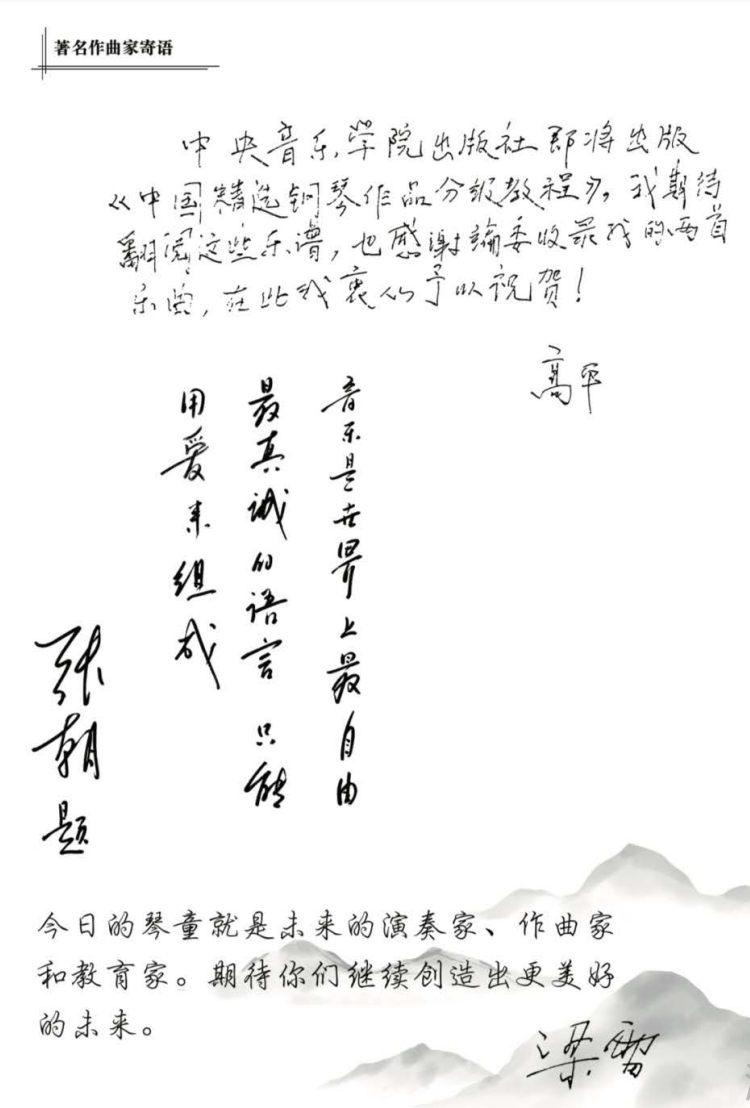 著名作曲家寄语
中央音乐学院出版社即将出版
《中国精选钢琴作品分级教程》，我期待
翻阅这些乐谱，也感谢编委收录我的两首
乐曲，在此我衷心予以祝贺！
高平
音乐是世界上最自由
最真诚的语言 只能
用爱来组成
张朝题
今日的琴童就是未来的演奏家、作曲家
和教育家。期待你们继续创造出更美好
的未来。
梁雷